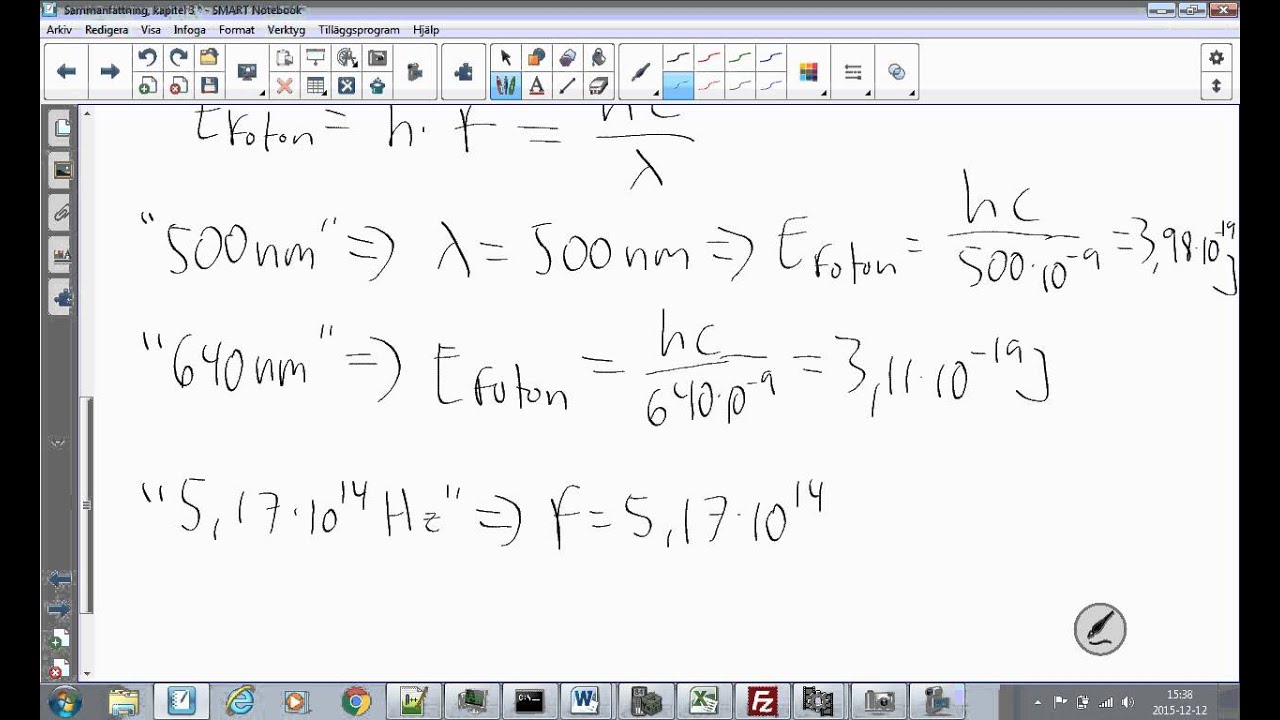 Sammanfattning, kapitel 3 * - SMART Notebook
Arkiv Redigera Visa Infoga Format Verktyg Tilläggsprogram Hjälp
E_Foton = h · f = hc/λ
"500nm" => λ = 500nm => E_Foton = hc/500·10^-9 = 3,98·10^-19 J
"640nm" => E_Foton = hc/640·10^-9 = 3,11·10^-19 J
"5,17·10^14 Hz" => f = 5,17·10^14
15:38
2015-12-12